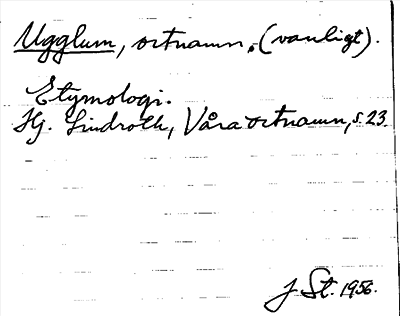 Ugglum, ortnamn, (vanligt).
Etymologi.
Hj. Lindroth, Våra ortnamn, s. 23.
J St. 1956.